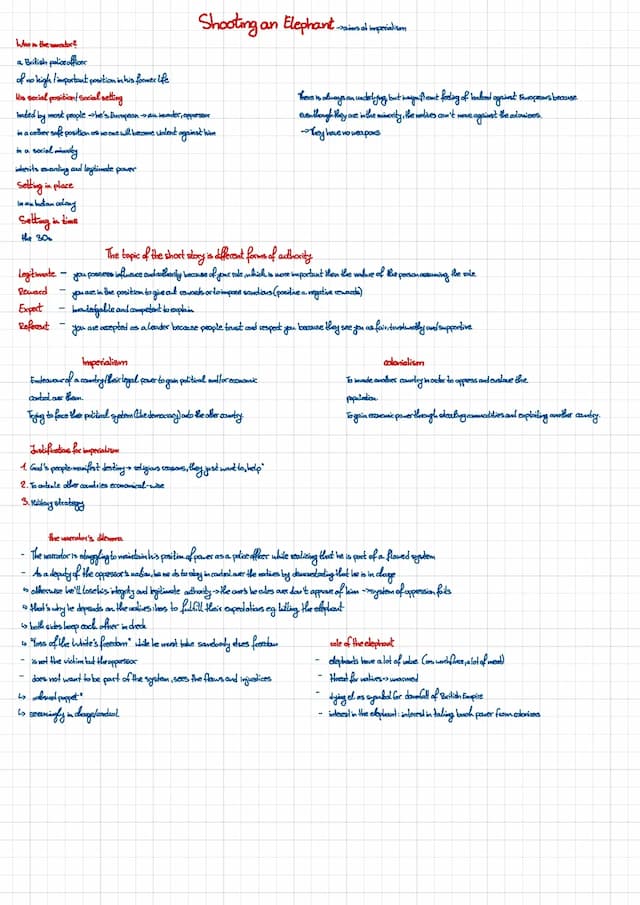 Shooting an Elephant → aims at imperialism
Who is the narrator?
a British police officer
of no high / important position in his former life
His social position / social setting
hated by most people → he's European → an invader, oppressor
in a rather safe position as no one will become violent against him
in a social minority
inherits rewarding and legitimate power
There is always an underlying, but insignificant feeling of hatred against Europeans because
even though they are in the minority, the natives can't move against the colonizers.
→ They have no weapons
Setting in place
in an Indian colony
Setting in time
the 30s
The topic of the short story is different forms of authority
Legitimate – you possess influence and authority because of your role, which is more important than the value of the person assuming the role.
Reward – you are in the position to give out rewards or to impose sanctions (positive a. negative rewards)
Expert – knowledgable and competent to explain
Referent – you are accepted as a leader because people trust and respect you because they see you as fair, trustworthy and supportive.
Imperialism
Endeavour of a country / their legal power to gain political and/or economic
control over them.
Trying to force their political system (like democracy) onto the other country.
colonialism
To invade another country in order to oppress and enslave the
population.
To gain economic power through stealing commodities and exploiting another country.
Justification for imperialism
1. God's people manifest destiny → religious reasons, they just want to "help"
2. To outrule other countries economical-wise
3. Military strategy
the narrator's dilemma
- The narrator is struggling to maintain his position of power as a police officer while realising that he is part of a flawed system
- As a deputy of the oppressor's nation, he to stay in control over the natives by demonstrating that he is in charge
↳ otherwise he'll lose his integrity and legitimate authority → the ones he rules over don't approve of him → system of oppression fails
↳ that's why he depends on the natives to fulfill their expectations eg killing the elephant
↳ both sides keep each other in check
↳ "loss of the white's freedom" while he must take somebody else's freedom
- is not the victim but the oppressor
- does not want to be part of the system, sees the flaws and injustices
↳ "absurd puppet"
↳ seemingly in charge/control
role of the elephant
- elephants have a lot of value (as workforce, a lot of meat)
- threat for natives → unarmed
- dying el. as symbol for downfall of British Empire
- interest in the elephant: interest in taking back power from colonizers